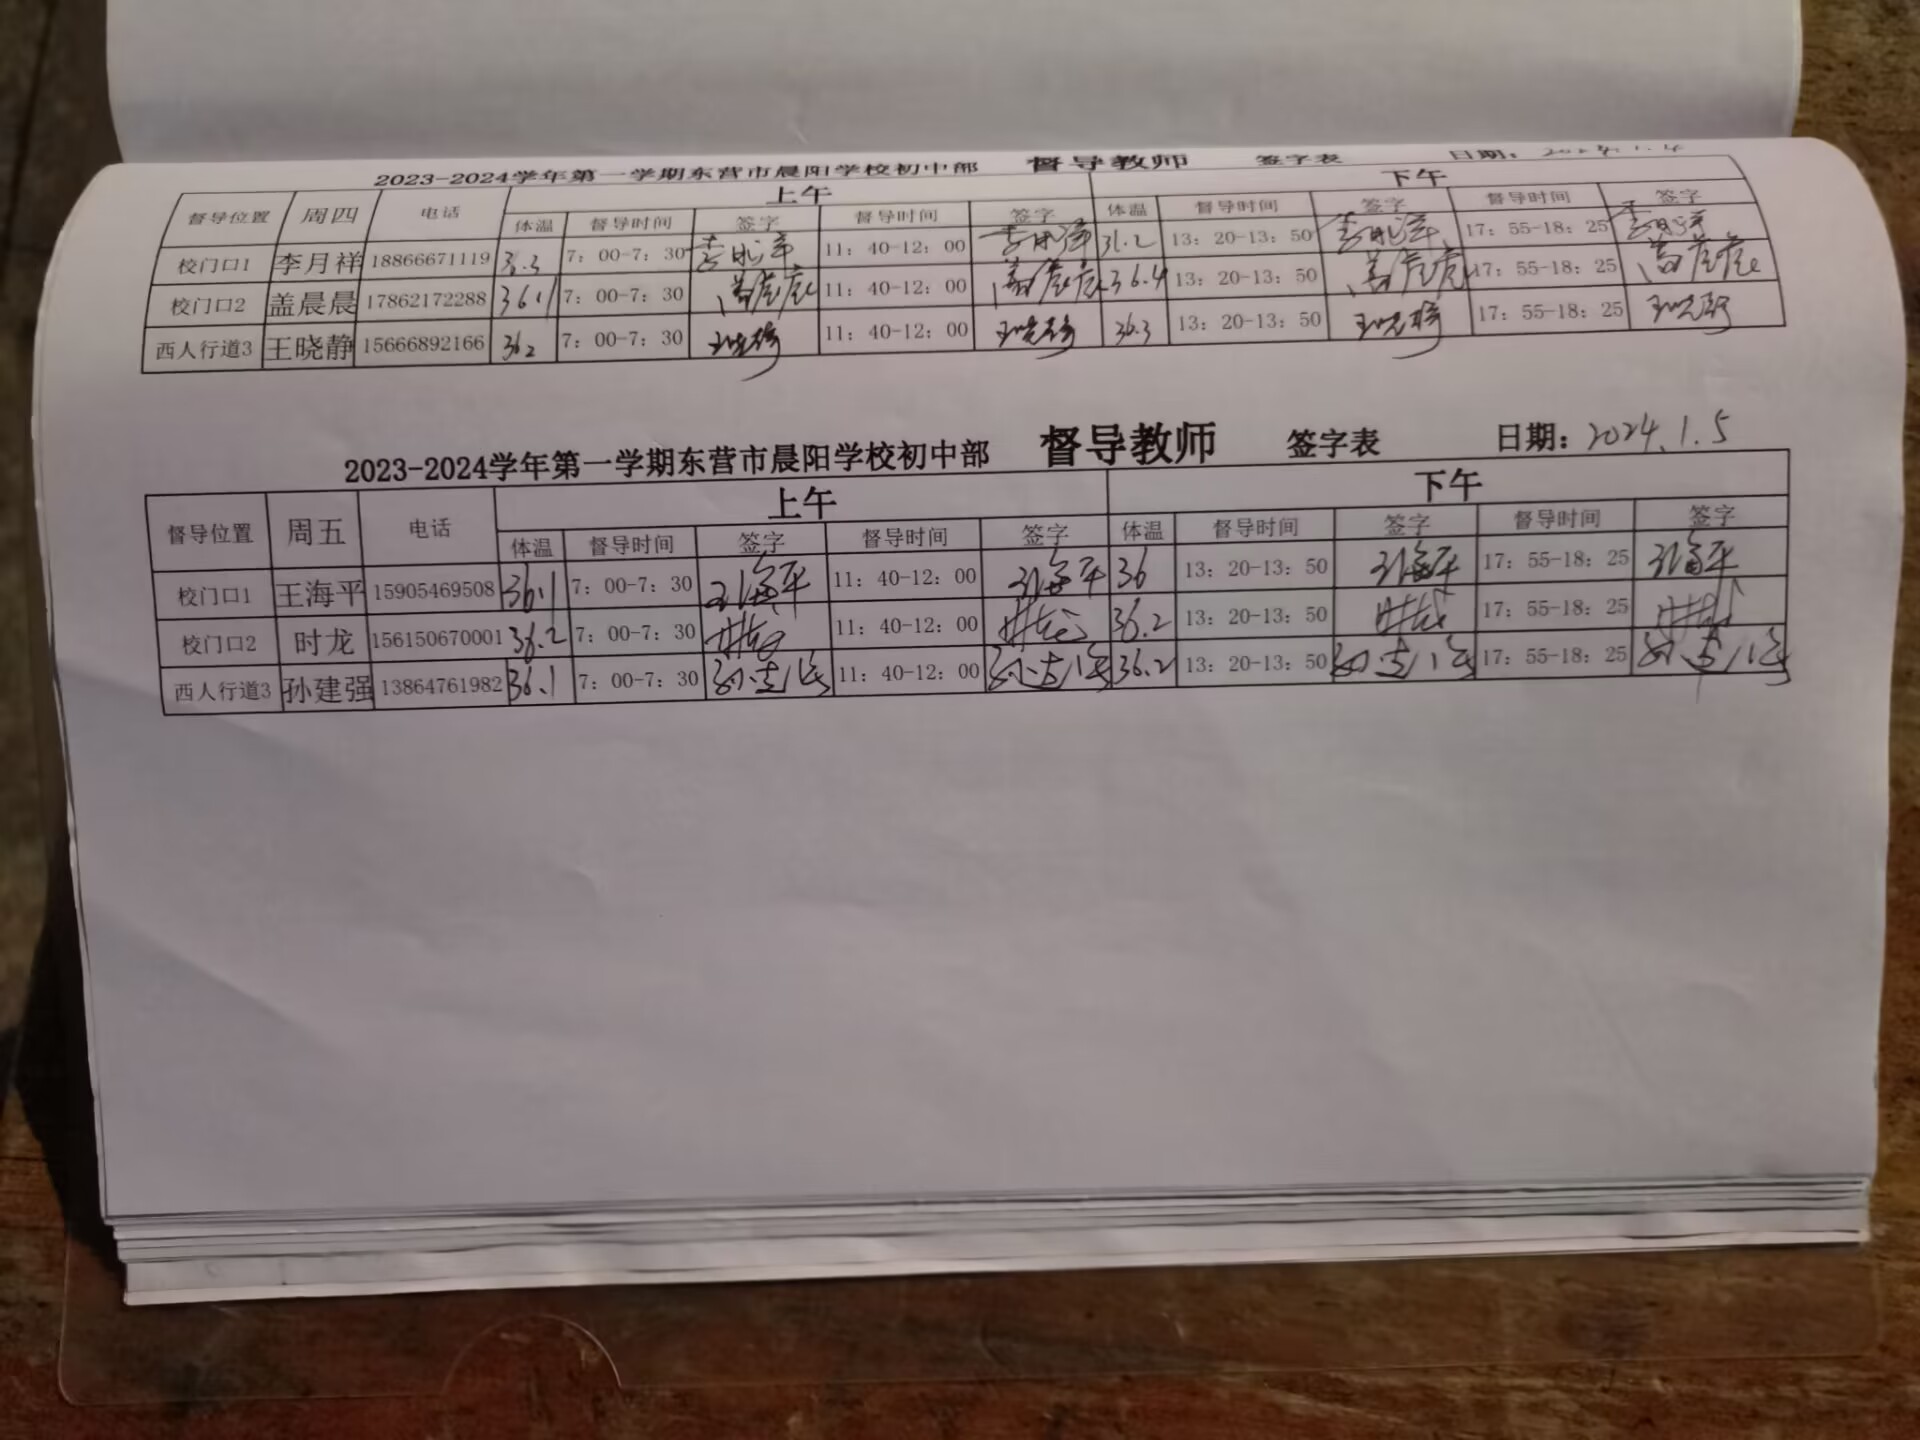 2023-2024学年第一学期东营市晨阳学校初中部 督导教师 签字表 日期: 2024.1.4
督导位置 周四 电话 上午 下午
体温 督导时间 签字 督导时间 签字 体温 督导时间 签字 督导时间 签字
校门口1 李月祥 18866671119 36.3 7:00-7:30 李月祥 11:40-12:00 李月祥 13:20-13:50 李月祥 17:55-18:25 李月祥
校门口2 盖晨晨 17862172288 36.1 7:00-7:30 盖晨晨 11:40-12:00 盖晨晨 36.4 13:20-13:50 盖晨晨 17:55-18:25 盖晨晨
西人行道3 王晓静 15666892166 36.2 7:00-7:30 王晓静 11:40-12:00 王晓静 36.3 13:20-13:50 王晓静 17:55-18:25 王晓静
2023-2024学年第一学期东营市晨阳学校初中部 督导教师 签字表 日期: 2024.1.5
督导位置 周五 电话 上午 下午
体温 督导时间 签字 督导时间 签字 体温 督导时间 签字 督导时间 签字
校门口1 王海平 15905469508 36.1 7:00-7:30 王海平 11:40-12:00 王海平 36 13:20-13:50 王海平 17:55-18:25 王海平
校门口2 时龙 156150670001 36.2 7:00-7:30 时龙 11:40-12:00 时龙 36.2 13:20-13:50 时龙 17:55-18:25 时龙
西人行道3 孙建强 13864761982 36.1 7:00-7:30 孙建强 11:40-12:00 孙建强 36.2 13:20-13:50 孙建强 17:55-18:25 孙建强